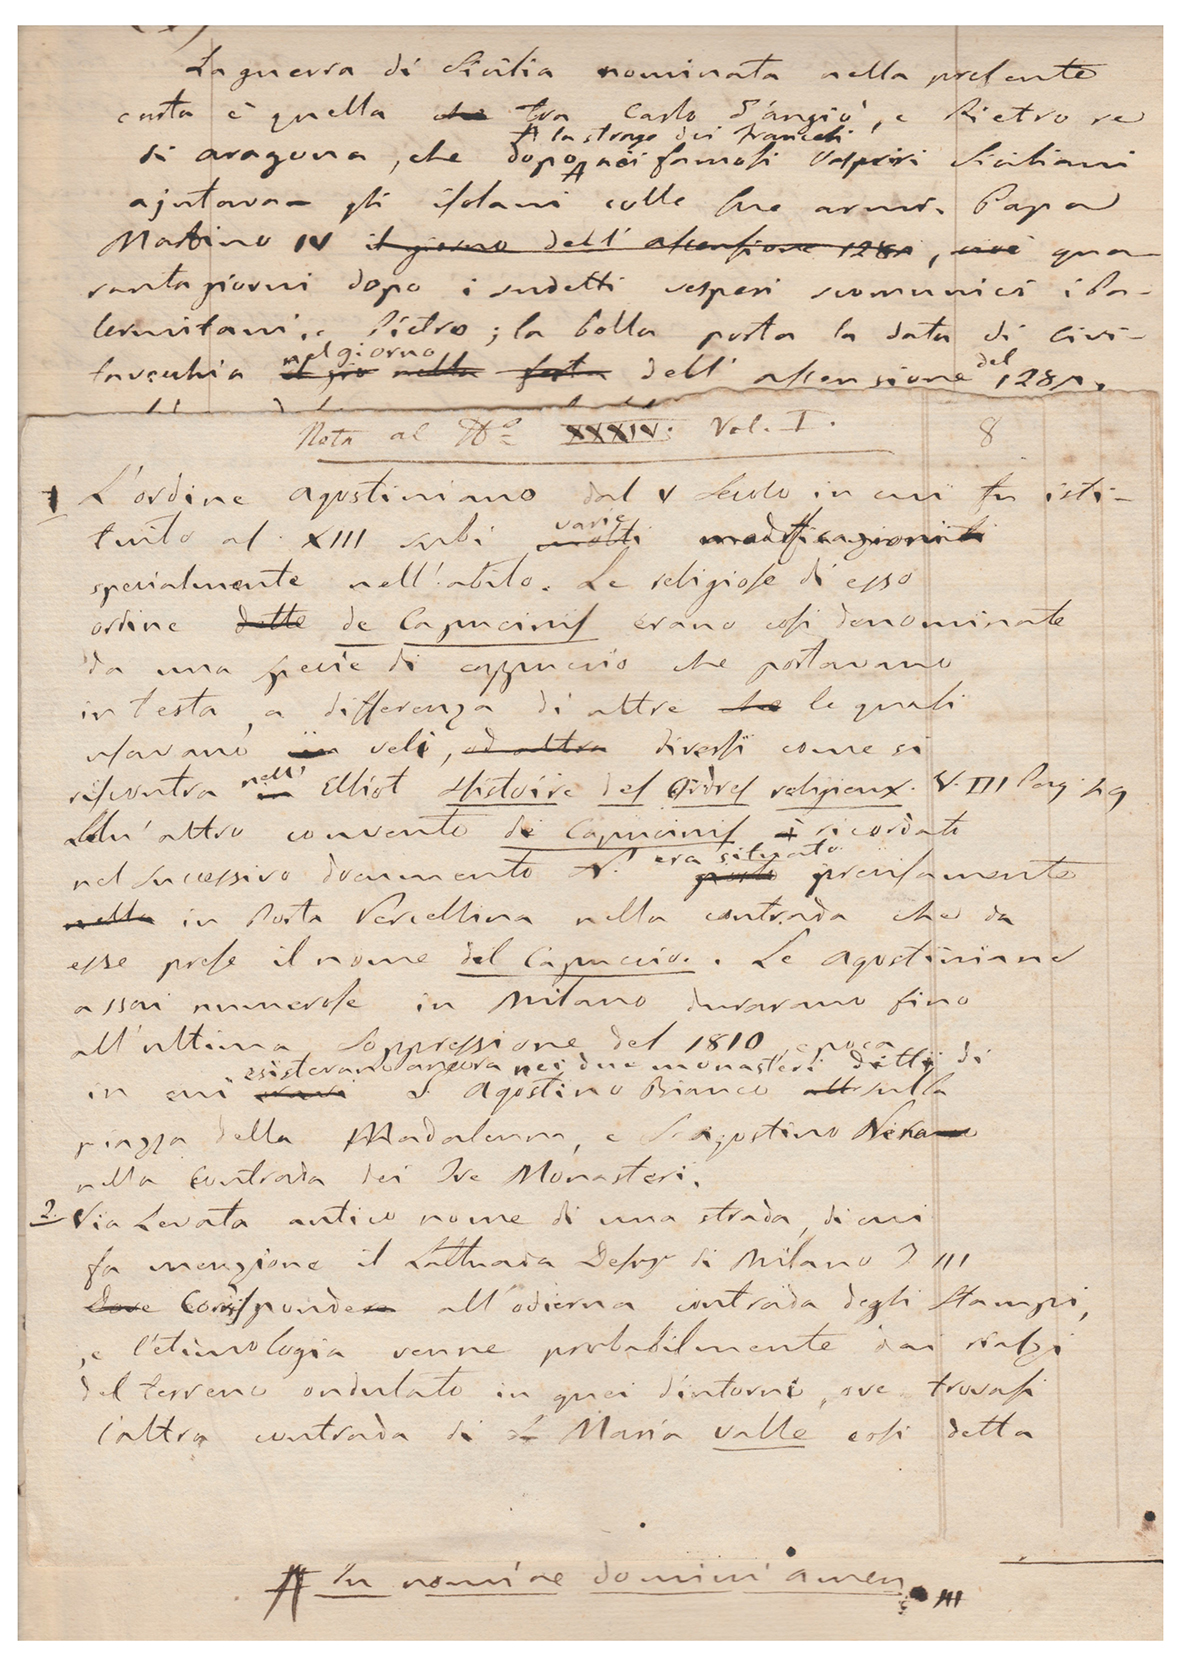 La guerra di Sicilia nominata nella presente
carta è quella che tra Carlo d'angiò, e Pietro re
la strage dei francesi
di aragona, che dopo famosi vespri Siciliani
ajutava gli isolani colle sue armi. Papa
Martino IV il giorno dell' ascensione 1281, cioè qua-
ranta giorni dopo i sudetti vesperi scomunicò i Pa-
lermitani, e Pietro; la bolla porta la data di Civi-
nel giorno
tavecchia il gio nella festa dell' ascensione del 1281.
Nota al N.º XXXIV. Vol. I. 8
1 L'ordine agostiniano dal V Secolo in cui fu isti-
varie
tuito al XIII subì molti modificazioni
specialmente nell'abito. Le religiose di esso
ordine dette de Capucinis erano così denominate
da una specie di cappuccio che portavano
in testa, a differenza di altre che le quali
usavano in veli, od altra diversi come si
nell'
riscontra in Elliot Histoire des Ordres religieux. V. III Pag. 49
Un'altro convento de Capucinis è ricordato
era situato
nel successivo documento N. posto precisamente
nella in Porta Vercellina nella contrada che da
esse prese il nome del Capuccio. Le agostiniane
assai numerose in Milano durarano fino
all'ultima Soppressione del 1810, epoca
esistevano ancora nei due monasteri detti di
in cui S. Agostino Bianco all sulla
piazza della Maddalenna, e S. agostino Nero
nella Contrada dei Tre Monasteri.
2. Via Levata antico nome di una strada, di cui
fa menzione il Lattuada Descr. di Milano T III
Dove Corrisponde all'odierna contrada degli Stampi,
e l'etimologia venne probabilmente dai rialzi
del terreno ondulato in quei dintorni, ove trovasi
l'altra contrada di S. Maria valle così detta
In nomine domini amen